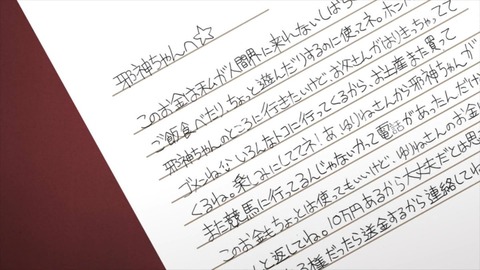 邪神ちゃんへ☆
このお金は私が人間界に来れないしばら
ご飯食べたりちょっと遊んだりするのに使ってネ。ホン
邪神ちゃんのところに行きたいけど、お父さんがはりきっちゃってて
ゴメンねな いろんなトコに行ってくるから、お土産また買って
くるね。楽しみにしててネ!あ、ゆりねさんから邪神ちゃんが
また競馬に行ってるんじゃないかって電話があったんだけ
このお金もちょっとは使ってもいいけど、ゆりねさんのお金
と返してね。10万円あるから大丈夫だとは思
る様だったら送金するから連絡してね